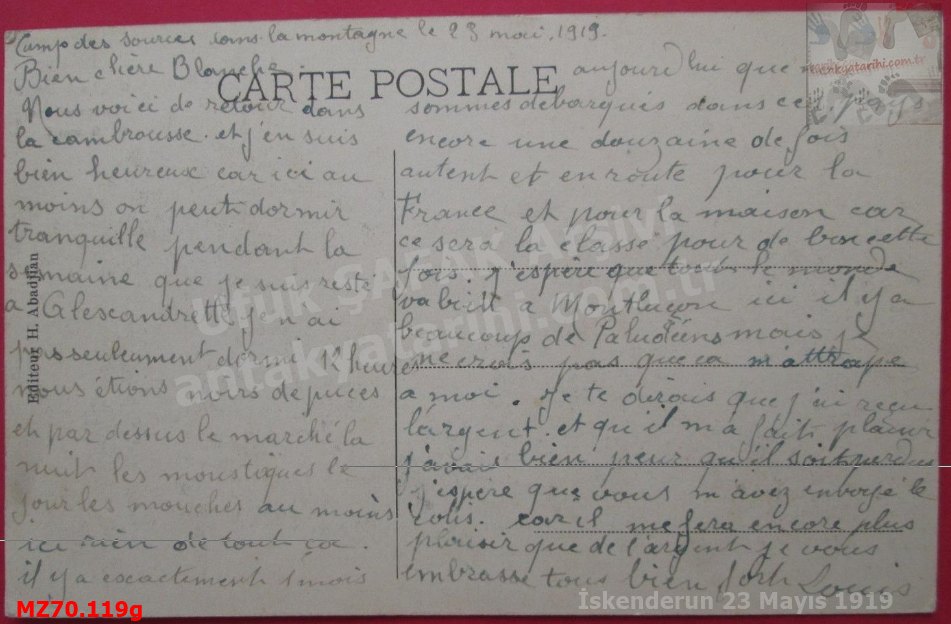 Camp des sources dans la montagne le 23 mai, 1919.
Bien chère Blanche
CARTE POSTALE
Nous voici de retour dans
la cambrousse. et j'en suis
bien heureux car ici au
moins on peut dormir
tranquille pendant la
semaine que je suis resté
a Alescandrette j'en ai
pas seulement dormi 12 heures
nous étions noirs de puces
et par dessus le marché la
nuit les moustiques le
jour les mouches au moins
ici rien de tout ça.
il y a exactement 1 mois
aujourd'hui que
sommes debarqués dans ce pays
encore une douzaine de fois
autent et en route pour la
France et pour la maison car
ce sera la classe pour de bon cette
fois. j'espère que tout le monde
va bien a Montluçon ici il y a
beaucoup de Paludéens mais je
ne crois pas que ca m'attrape
a moi. Je te dirais que j'ai reçu
l'argent. et qu'il m'a fait plaisir
j'avais bien peur qu'il soit perdu
j'espère que vous m'avez envoyé le
colis. car il me fera encore plus
plaisir que de l'argent je vous
embrasse tous bien fort Louis
Editeur H. Abadjian
Ufuk ŞAFAK Arşivi
antakyatarihi.com.tr
antakyatarihi.com.tr
MZ70.119g
İskenderun 23 Mayıs 1919